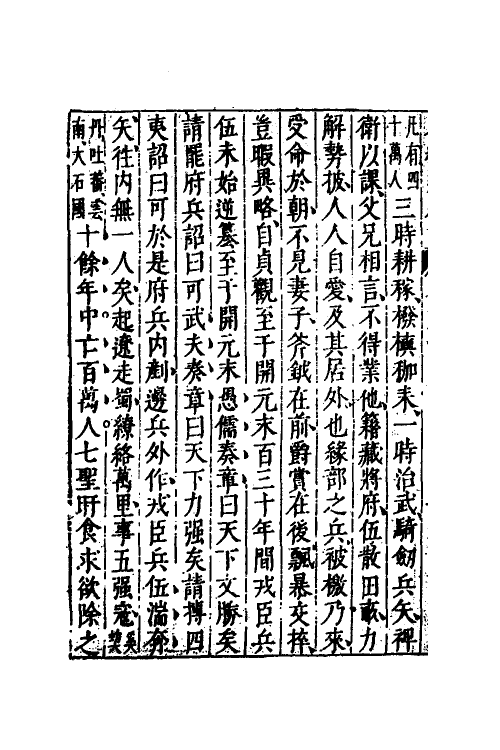 凡有四十萬人三時耕稼襏襫耞耒一時治武騎劒兵矢裨
衛以課父兄相言不得業他籍藏將府伍散田畝力
解勢披人人自愛及其居外也緣部之兵被檄乃來
受命於朝不見妻子斧鉞在前爵賞在後飄暴交捽
豈暇異略自貞觀至于開元末百三十年間戎臣兵
伍未始逆篡至于開元末愚儒奏章曰天下文勝矣
請罷府兵詔曰可武夫奏章曰天下力强矣請搏四
夷詔曰可於是府兵内剷邊兵外作戎臣兵伍湍奔
矢往内無一人矣起遼走蜀繚絡萬里事五强寇奚契
丹吐蕃雲南大石國十餘年中亡百萬人七聖旰食求欲除之